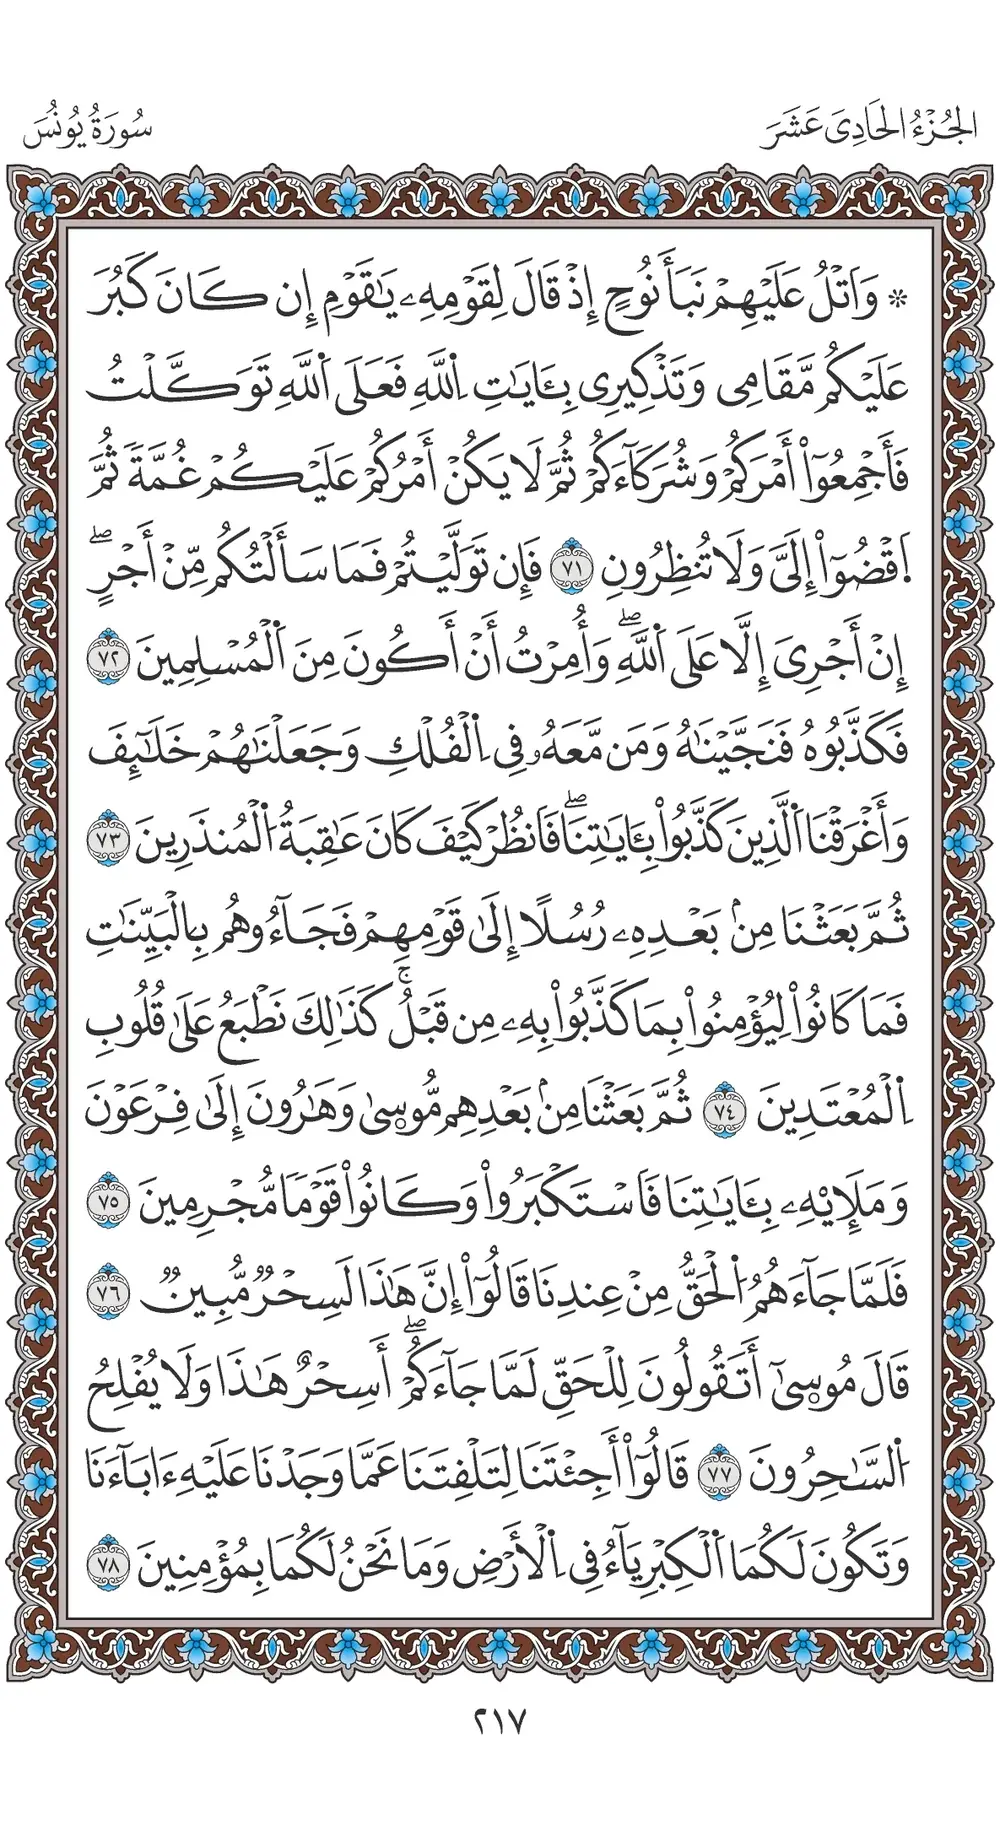 الجُزْءُ الحَادِىَ عَشَرَ
سُورَةُ يُونُسَ
۞ وَاَتْلُ عَلَيْهِمْ نَبَأَ نُوحٍ إِذْ قَالَ لِقَوْمِهِۦ يَٰقَوْمِ إِن كَانَ كَبُرَ
عَلَيْكُم مَّقَامِى وَتَذْكِيرِى بِـَٔايَٰتِ اِ۬للَّهِ فَعَلَى اَ۬للَّهِ تَوَكَّلْتُ
فَأَجْمِعُوٓا۟ أَمْرَكُمْ وَشُرَكَآءَكُمْ ثُمَّ لَا يَكُنْ أَمْرُكُمْ عَلَيْكُمْ غُمَّةً ثُمَّ
اَ۪قْضُوٓا۟ إِلَىَّ وَلَا تُنظِرُونِ ٧١ فَإِن تَوَلَّيْتُمْ فَمَا سَأَلْتُكُم مِّنْ أَجْرٍۖ
إِنْ أَجْرِىَ إِلَّا عَلَى اَ۬للَّهِۖ وَأُمِرْتُ أَنْ أَكُونَ مِنَ اَ۬لْمُسْلِمِينَ ٧٢
فَكَذَّبُوهُ فَنَجَّيْنَٰهُ وَمَن مَّعَهُۥ فِى اِ۬لْفُلْكِ وَجَعَلْنَٰهُمْ خَلَٰٓئِفَ
وَأَغْرَقْنَا اَ۬لَّذِينَ كَذَّبُوا۟ بِـَٔايَٰتِنَاۖ فَانظُرْ كَيْفَ كَانَ عَٰقِبَةُ اُ۬لْمُنذَرِينَ ٧٣
ثُمَّ بَعَثْنَا مِنۢ بَعْدِهِۦ رُسُلًا إِلَىٰ قَوْمِهِمْ فَجَآءُوهُم بِالْبَيِّنَٰتِ
فَمَا كَانُوا۟ لِيُؤْمِنُوا۟ بِمَا كَذَّبُوا۟ بِهِۦ مِن قَبْلُۚ كَذَٰلِكَ نَطْبَعُ عَلَىٰ قُلُوبِ
اِ۬لْمُعْتَدِينَ ٧٤ ثُمَّ بَعَثْنَا مِنۢ بَعْدِهِم مُّوسٜىٰ وَهَٰرُونَ إِلَىٰ فِرْعَوْنَ
وَمَلَإِيْهِۦ بِـَٔايَٰتِنَا فَاسْتَكْبَرُوا۟ وَكَانُوا۟ قَوْمًا مُّجْرِمِينَ ٧٥
فَلَمَّا جَآءَهُمُ اُ۬لْحَقُّ مِنْ عِندِنَا قَالُوٓا۟ إِنَّ هَٰذَا لَسِحْرٌ مُّبِينٌ ٧٦
قَالَ مُوسٜىٰ أَتَقُولُونَ لِلْحَقِّ لَمَّا جَآءَكُمْۖ أَسِحْرٌ هَٰذَا وَلَا يُفْلِحُ
اُ۬لسَّٰحِرُونَ ٧٧ قَالُوٓا۟ أَجِئْتَنَا لِتَلْفِتَنَا عَمَّا وَجَدْنَا عَلَيْهِ ءَابَآءَنَا
وَتَكُونَ لَكُمَا اَ۬لْكِبْرِيَآءُ فِى اِ۬لْأَرْضِ وَمَا نَحْنُ لَكُمَا بِمُؤْمِنِينَ ٧٨
٢١٧